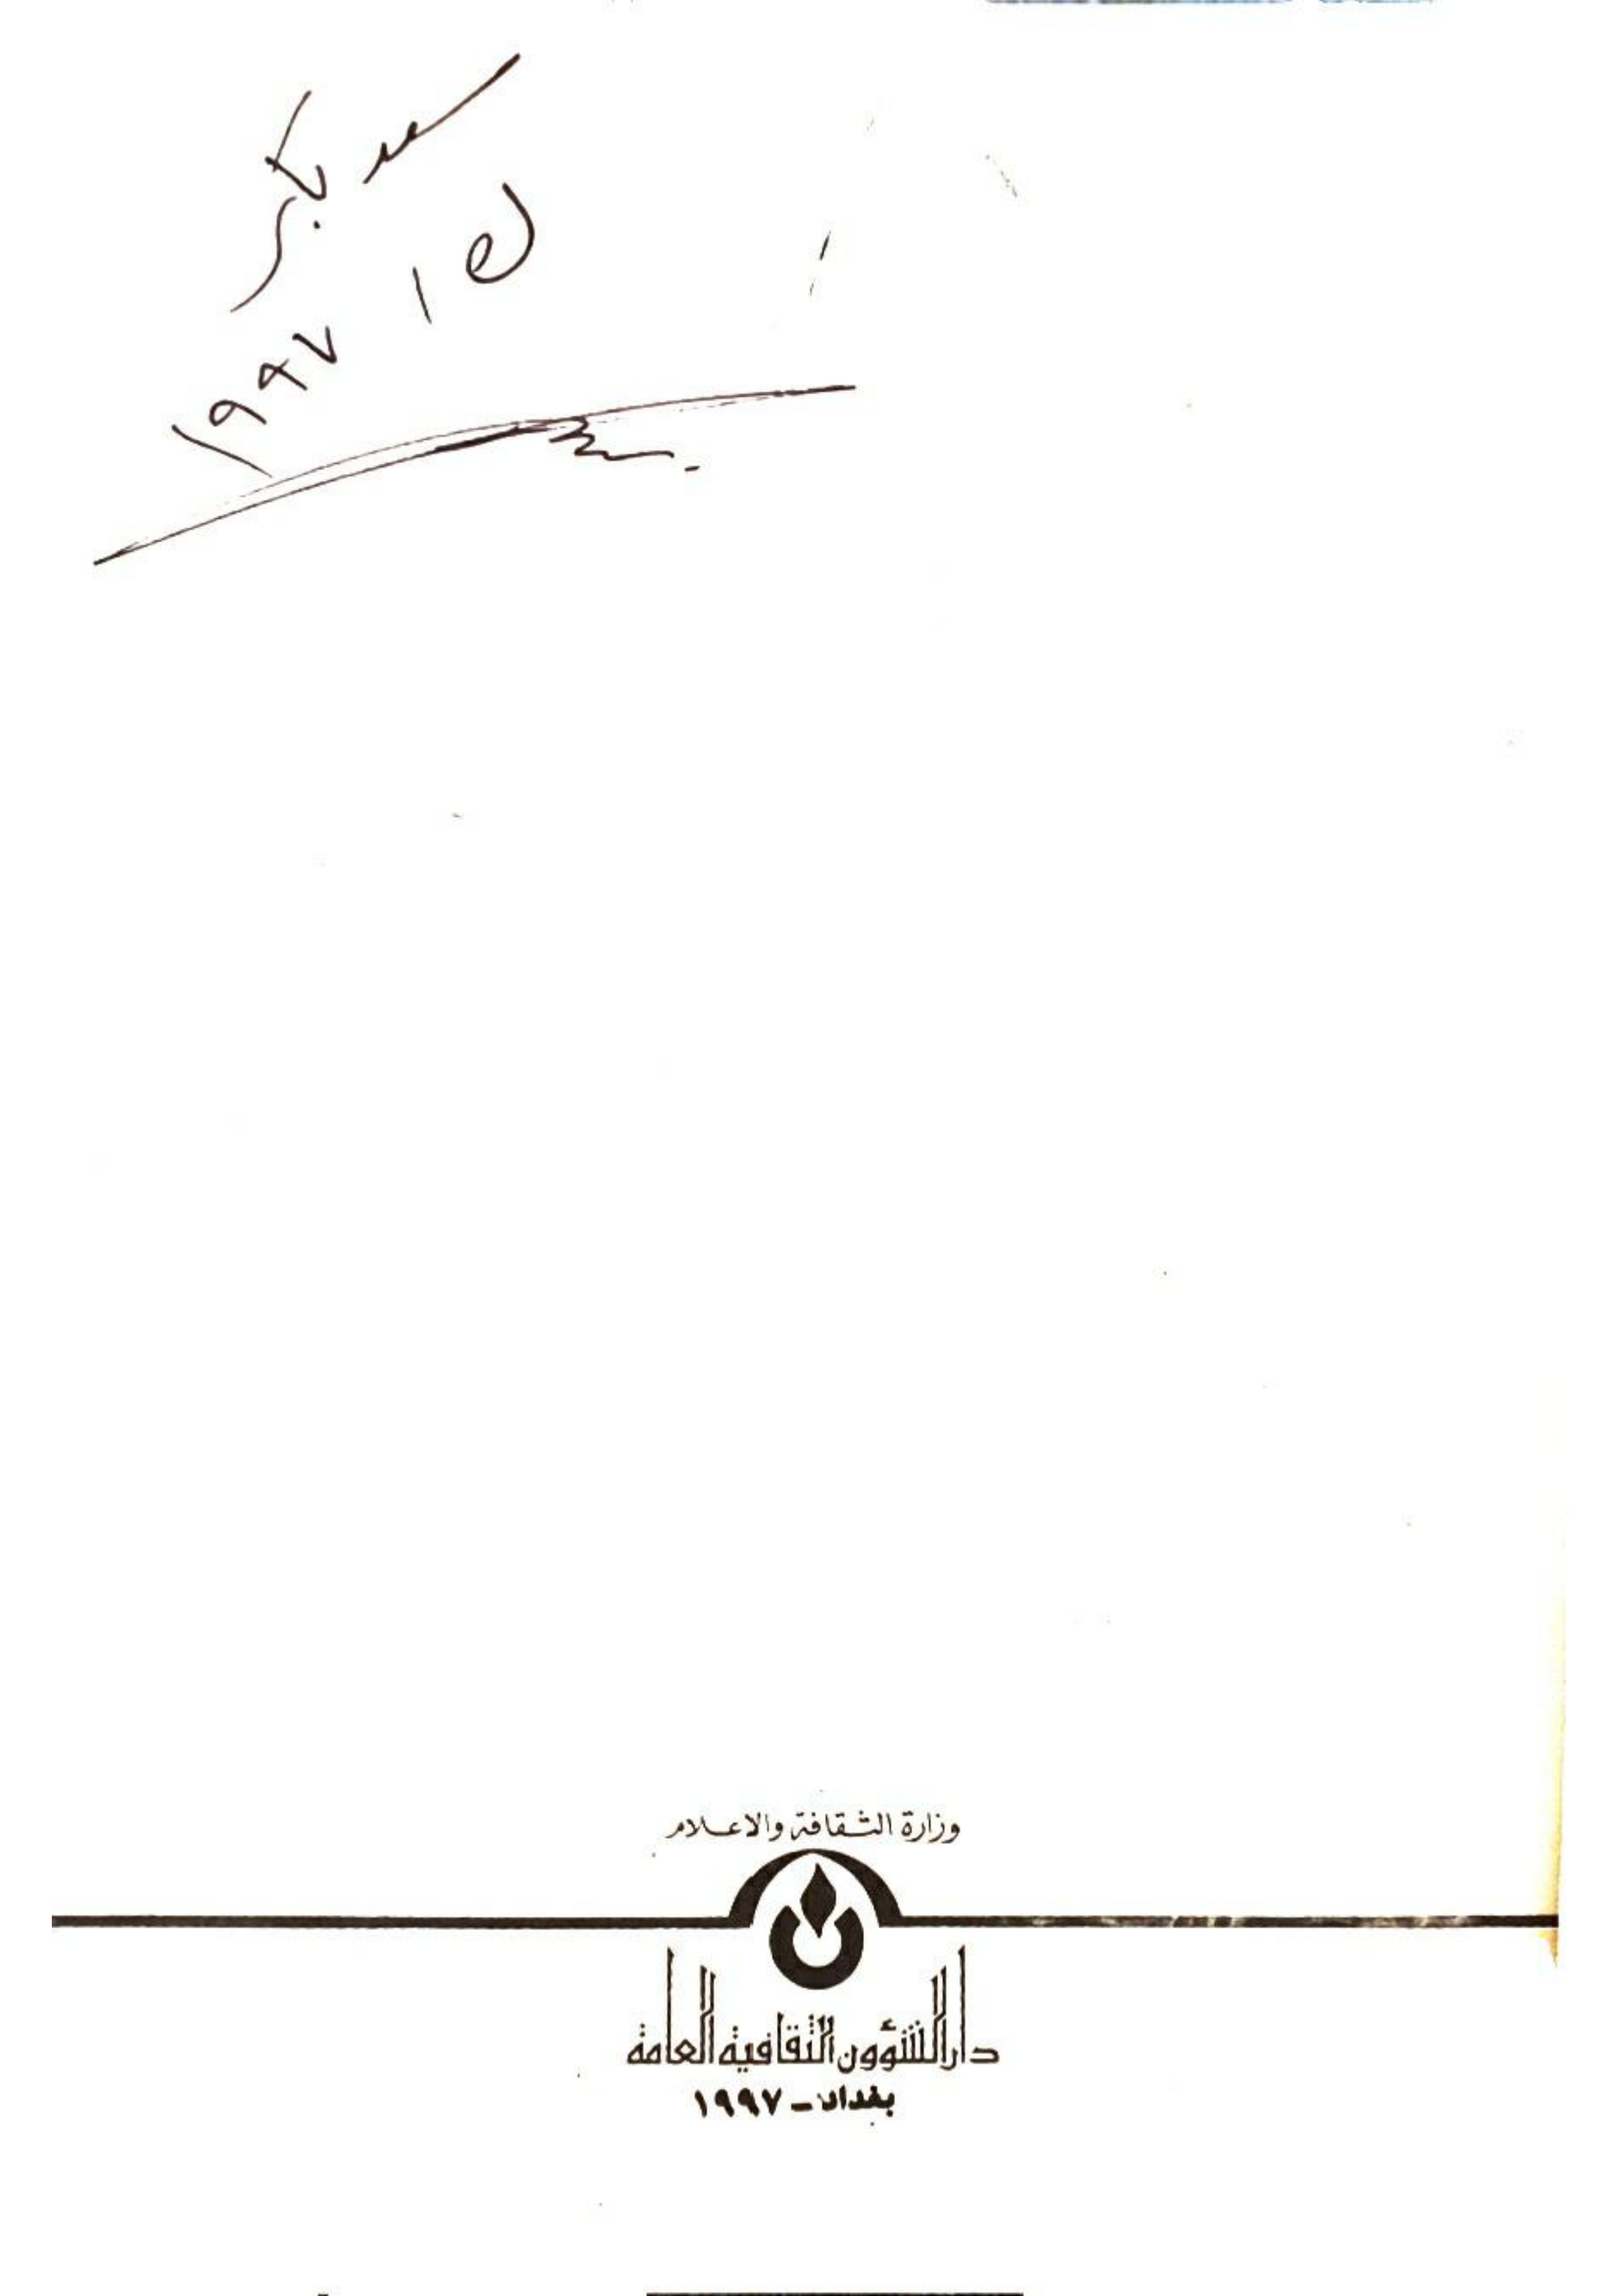 ك ١ ١٩٩٧
وزارة الثقافة والاعلام
دار الشؤون الثقافية العامة
بغداد - ١٩٩٧